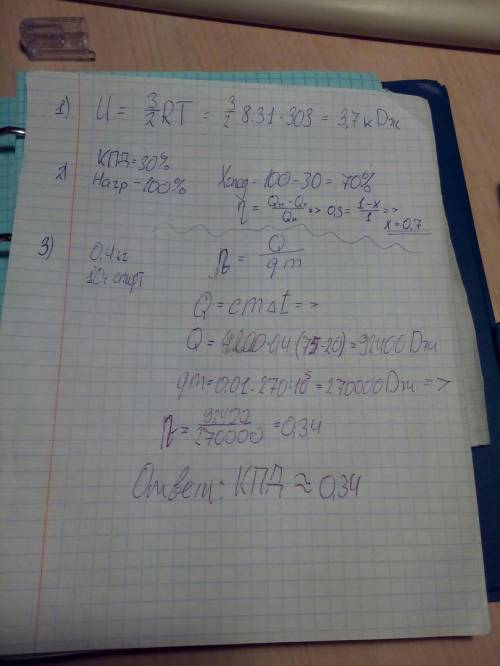 1) U = 3/2 RT = 3/2 8.31·303 = 3,7 кДж
2) КПД=30%
Нагр=100%
Холод-100-30=70%
η = Qн-Qх/Qн => 0,3 = 1-x/1 =>
x=0,7
3) 0,4 кг
10г спирт
η = Q/qm
Q = cmΔt =>
Q = 4200·0,4 (75-20)=92400 Дж
qm=0,01·270·10⁵=270000 Дж =>
η = 92400/270000 = 0,34
Ответ: КПД ≈ 0,34